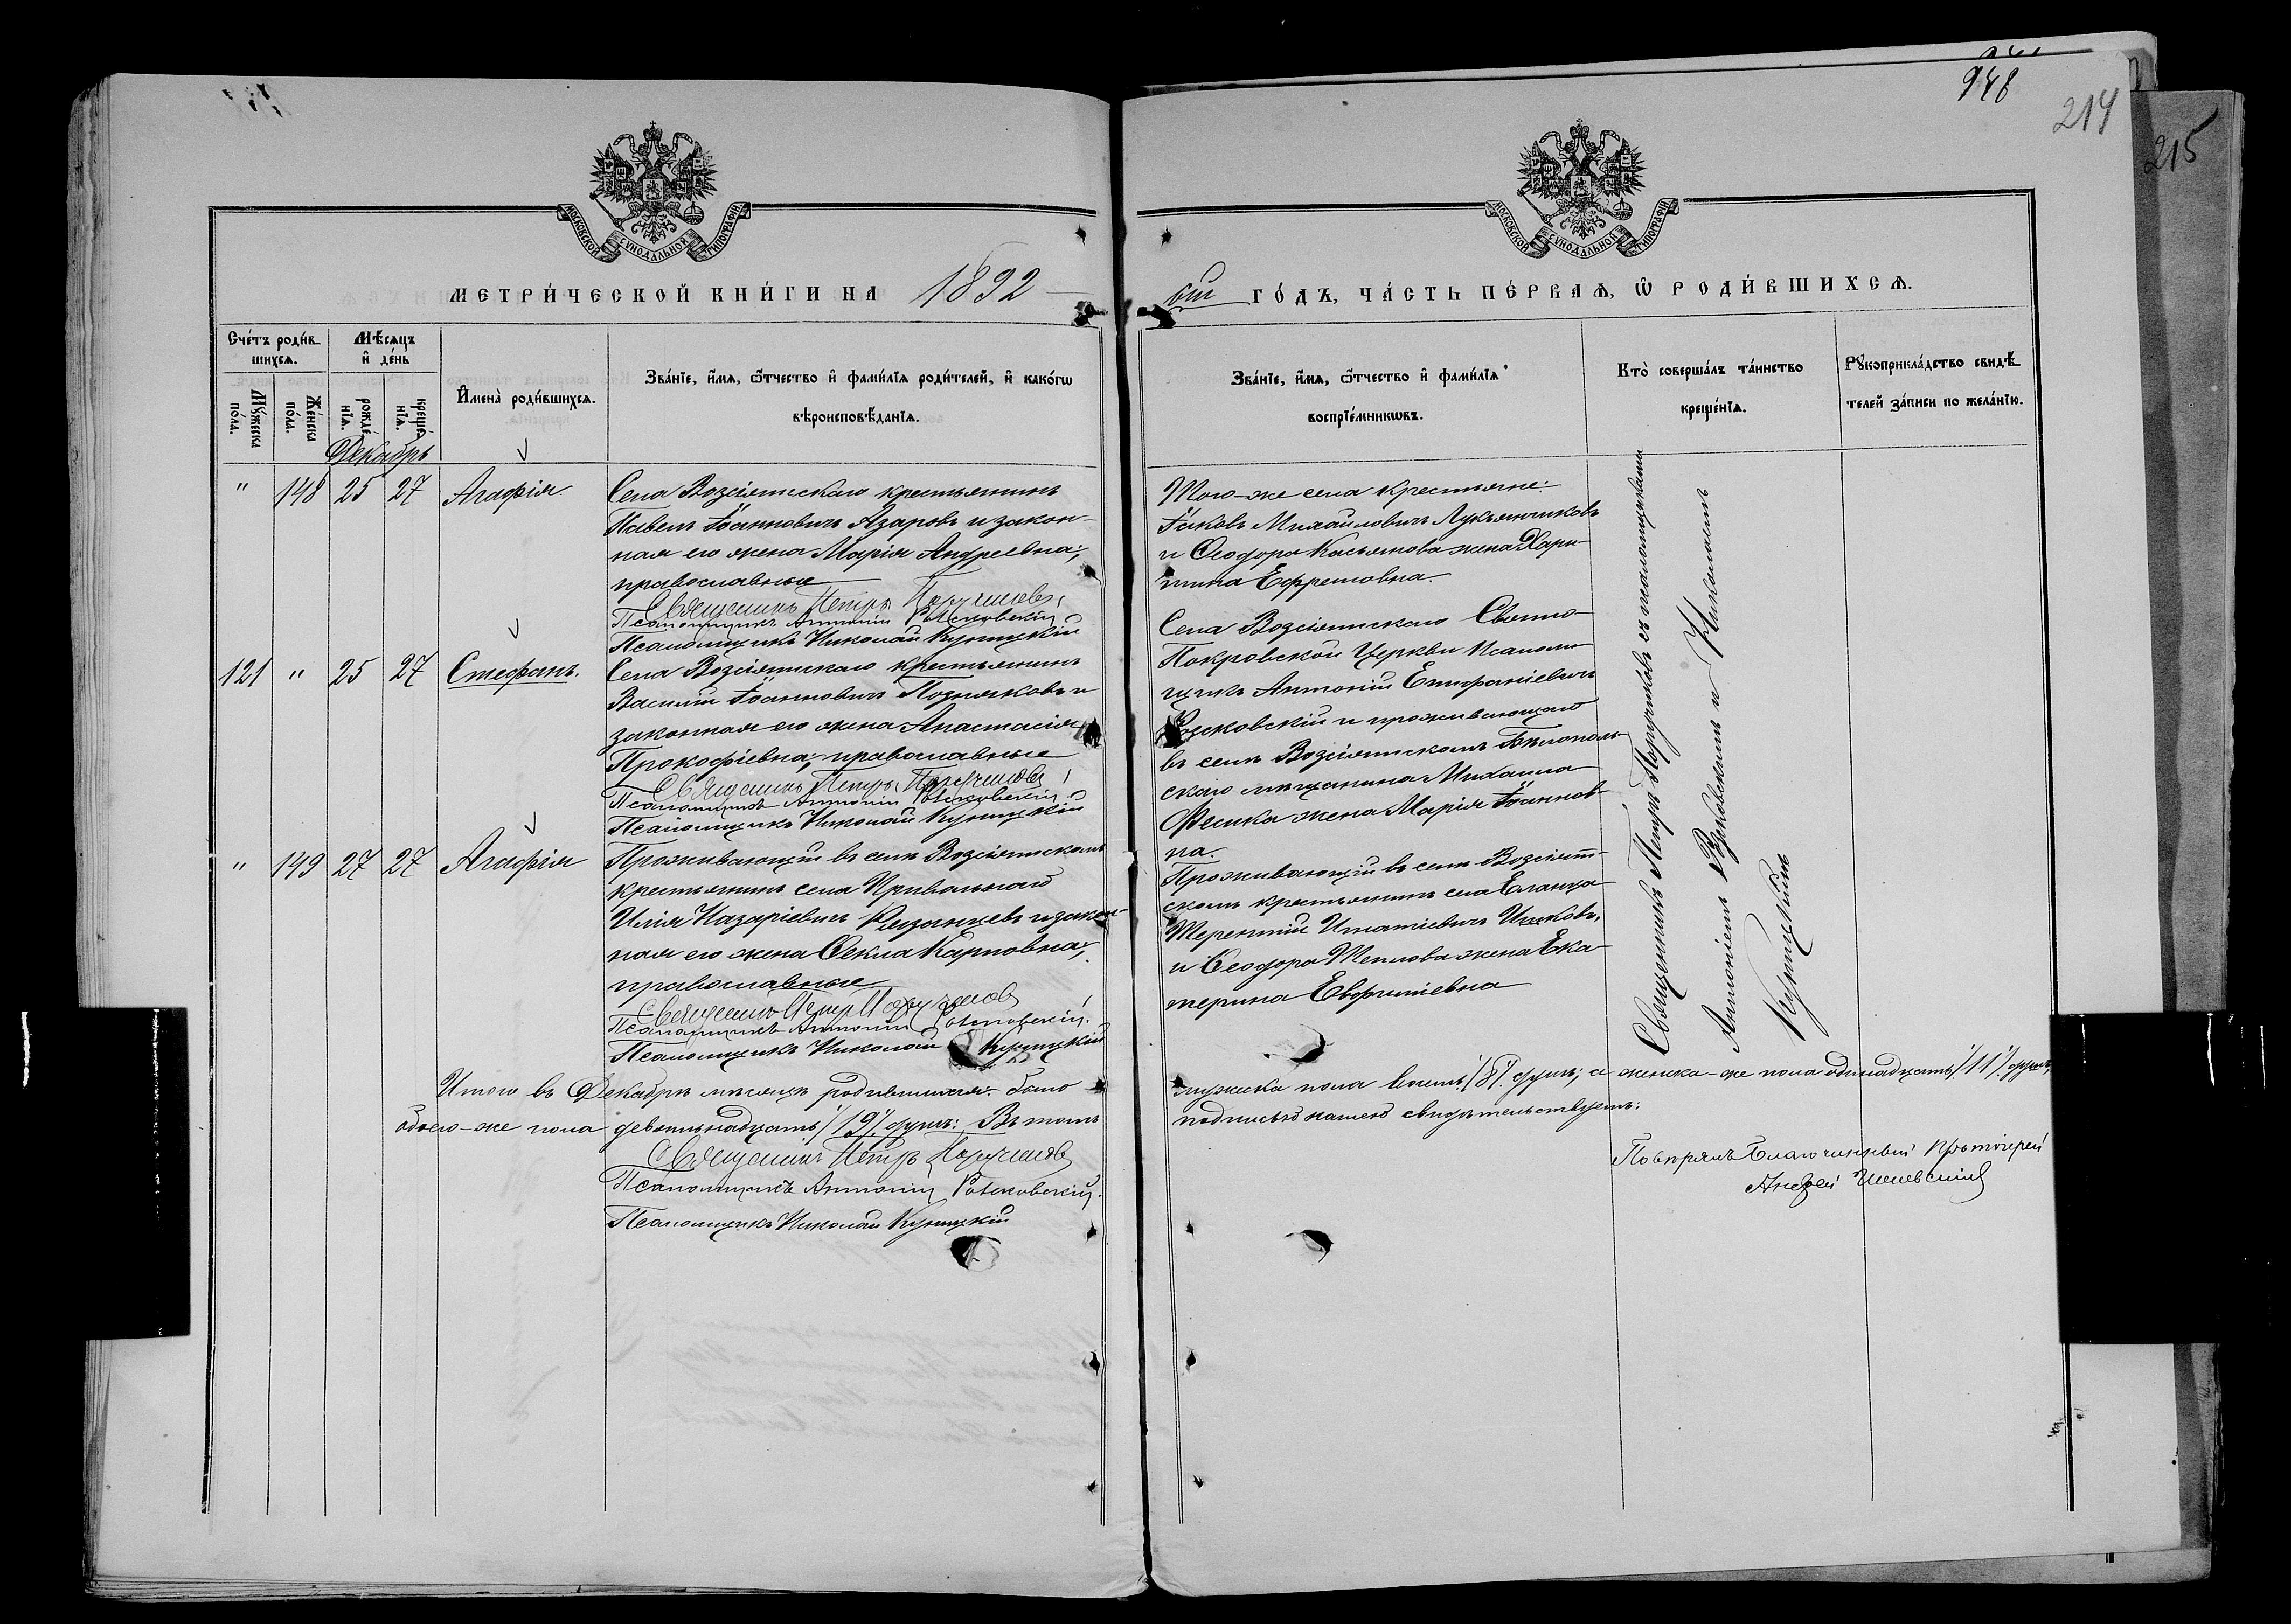 948
214
215
МОСКОВСКОЙ СѴНОДАЛЬНОЙ ТИПОГРАФІИ
МОСКОВСКОЙ СѴНОДАЛЬНОЙ ТИПОГРАФІИ
МЕТРИ́ЧЕСКОЙ КНИ́ГИ НА 1892
ой ГО́ДЪ, ЧА́СТЬ ПЕ́РВАѦ, Ѽ РОДИ́ВШИХСѦ.
Сче́тъ роди́в
шихсѧ.
Мѣ́сѧцъ
и҆ де́нь
Мꙋ́жеска
по́ла.
Же́нска
по́ла.
рожде́
нїѧ.
креще́
нїѧ.
И҆мена̀ роди́вшихсѧ.
Зва́нїе, и҆́мѧ, ѻ҆́тчество и҆ фами́лїѧ роди́телей, и҆ како́гѡ
вѣроисповѣ́данїѧ.
Зва́нїе, и҆́мѧ, ѻ҆́тчество и҆ фами́лїѧ
воспрїе́мникѡвъ.
Кто̀ соверша́лъ та́инство
креще́нїѧ.
Рꙋкоприкла́дство свидѣ́
телей за́писи по жела́нїю.
Декабрь
" 148 25 27 Агафія.
Села Возсіятскаго крестьянинъ
Павелъ Іоанновичъ Азаровъ и закон-
ная его жена Марія Андреевна;
православные
Священникъ Петръ Поручиковъ
Псаломщикъ Антоній Росковскій
Псаломщикъ Николай Куницкій
Того-же села крестьяне:
Іаковъ Михаиловичъ Лукьянчиковъ
и Ѳеодора Касьянова жена Хари-
тина Ефремовна.
121 " 25 27 Стефанъ.
Села Возсіятскаго крестьянинъ
Василій Іоанновичъ Позняковъ и
законная его жена Анастасія
Прокофіевна; православные
Священникъ Петръ Поручиковъ
Псаломщикъ Антоній Росковскій
Псаломщикъ Николай Куницкій
Села Возсіятскаго Свято-
Покровской Церкви Псалом-
щикъ Антоній Епифаніевичъ
Росковскій и проживающаго
въ селѣ Возсіятскомъ Бѣлополь-
скаго мѣщанина Михаила
Фесика жена Марія Іоаннов-
на.
" 149 27 27 Агафія
Проживающій въ селѣ Возсіятскомъ
крестьянинъ села Привольнаго
Илія Назаріевичъ Рязанцевъ и закон-
ная его жена Ѳекла Карповна;
православные
Священникъ Петръ Поручиковъ
Псаломщикъ Антоній Росковскій.
Псаломщикъ Николай Куницкій
Проживающій въ селѣ Возсіят-
скомъ крестьянинъ села Еланца
Терентій Игнатіевичъ
и Ѳеодора Теплова жена Ека-
терина Евфиміевна
Священникъ Петръ Поручиковъ съ псаломщиками
Антоніемъ Росковскимъ и Николаемъ
Куницкимъ
Итого въ Декабрѣ мѣсяцѣ родившихся: было
мужска пола восемь /8/. душъ; а женска-же пола одинадцать /11/. душъ,
обоего-же пола девятьнадцать /19/. душъ: Въ томъ
подписью нашею свидѣтельствуемъ:
Священникъ Петръ Поручиковъ
Псаломщикъ Антоній Росковскій.
Псаломщикъ Николай Куницкій
Повѣрялъ Благочинный Протоіерей
Андрей